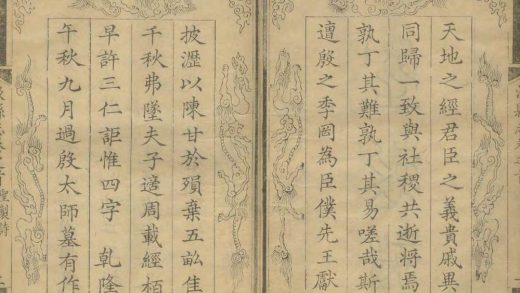 天地之經君臣之義貴戚異
同歸一致與社稷共逝將焉
孰丁其難孰丁其易嗟哉斯
邅殷之季罔為臣僕先王獻
披瀝以陳甘於殞棄五畝佳
千秋弗墜夫子適周載經栢
早許三仁詎惟四字 乾隆
午秋九月過殷太師墓有作
聖製詩